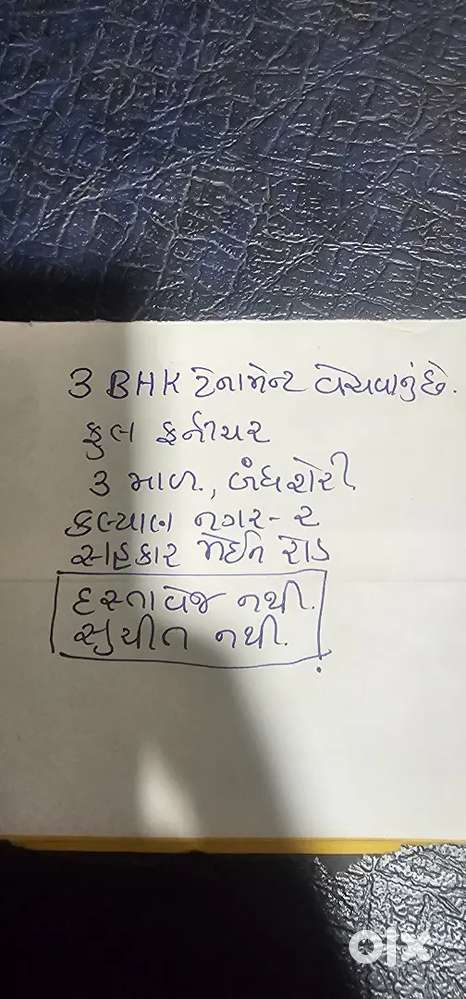 3 BHK ટેનામેન્ટ વેચવાનું છે.
ફુલ ફર્નીચર
૩ માળ, બંધશેરી
કલ્યાણ નગર - ૨
સહકાર મેઈન રોડ
દસ્તાવેજ નથી.
સુચીત નથી.
olx